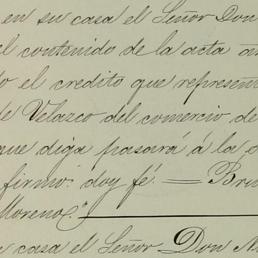 en su casa el Señor Don
el contenido de la acta an
o el credito que represen
de Velazco del comercio de
que diga pasará á la o
firmo: doy fé = Bru
Moreno"
casa el Señor Don M